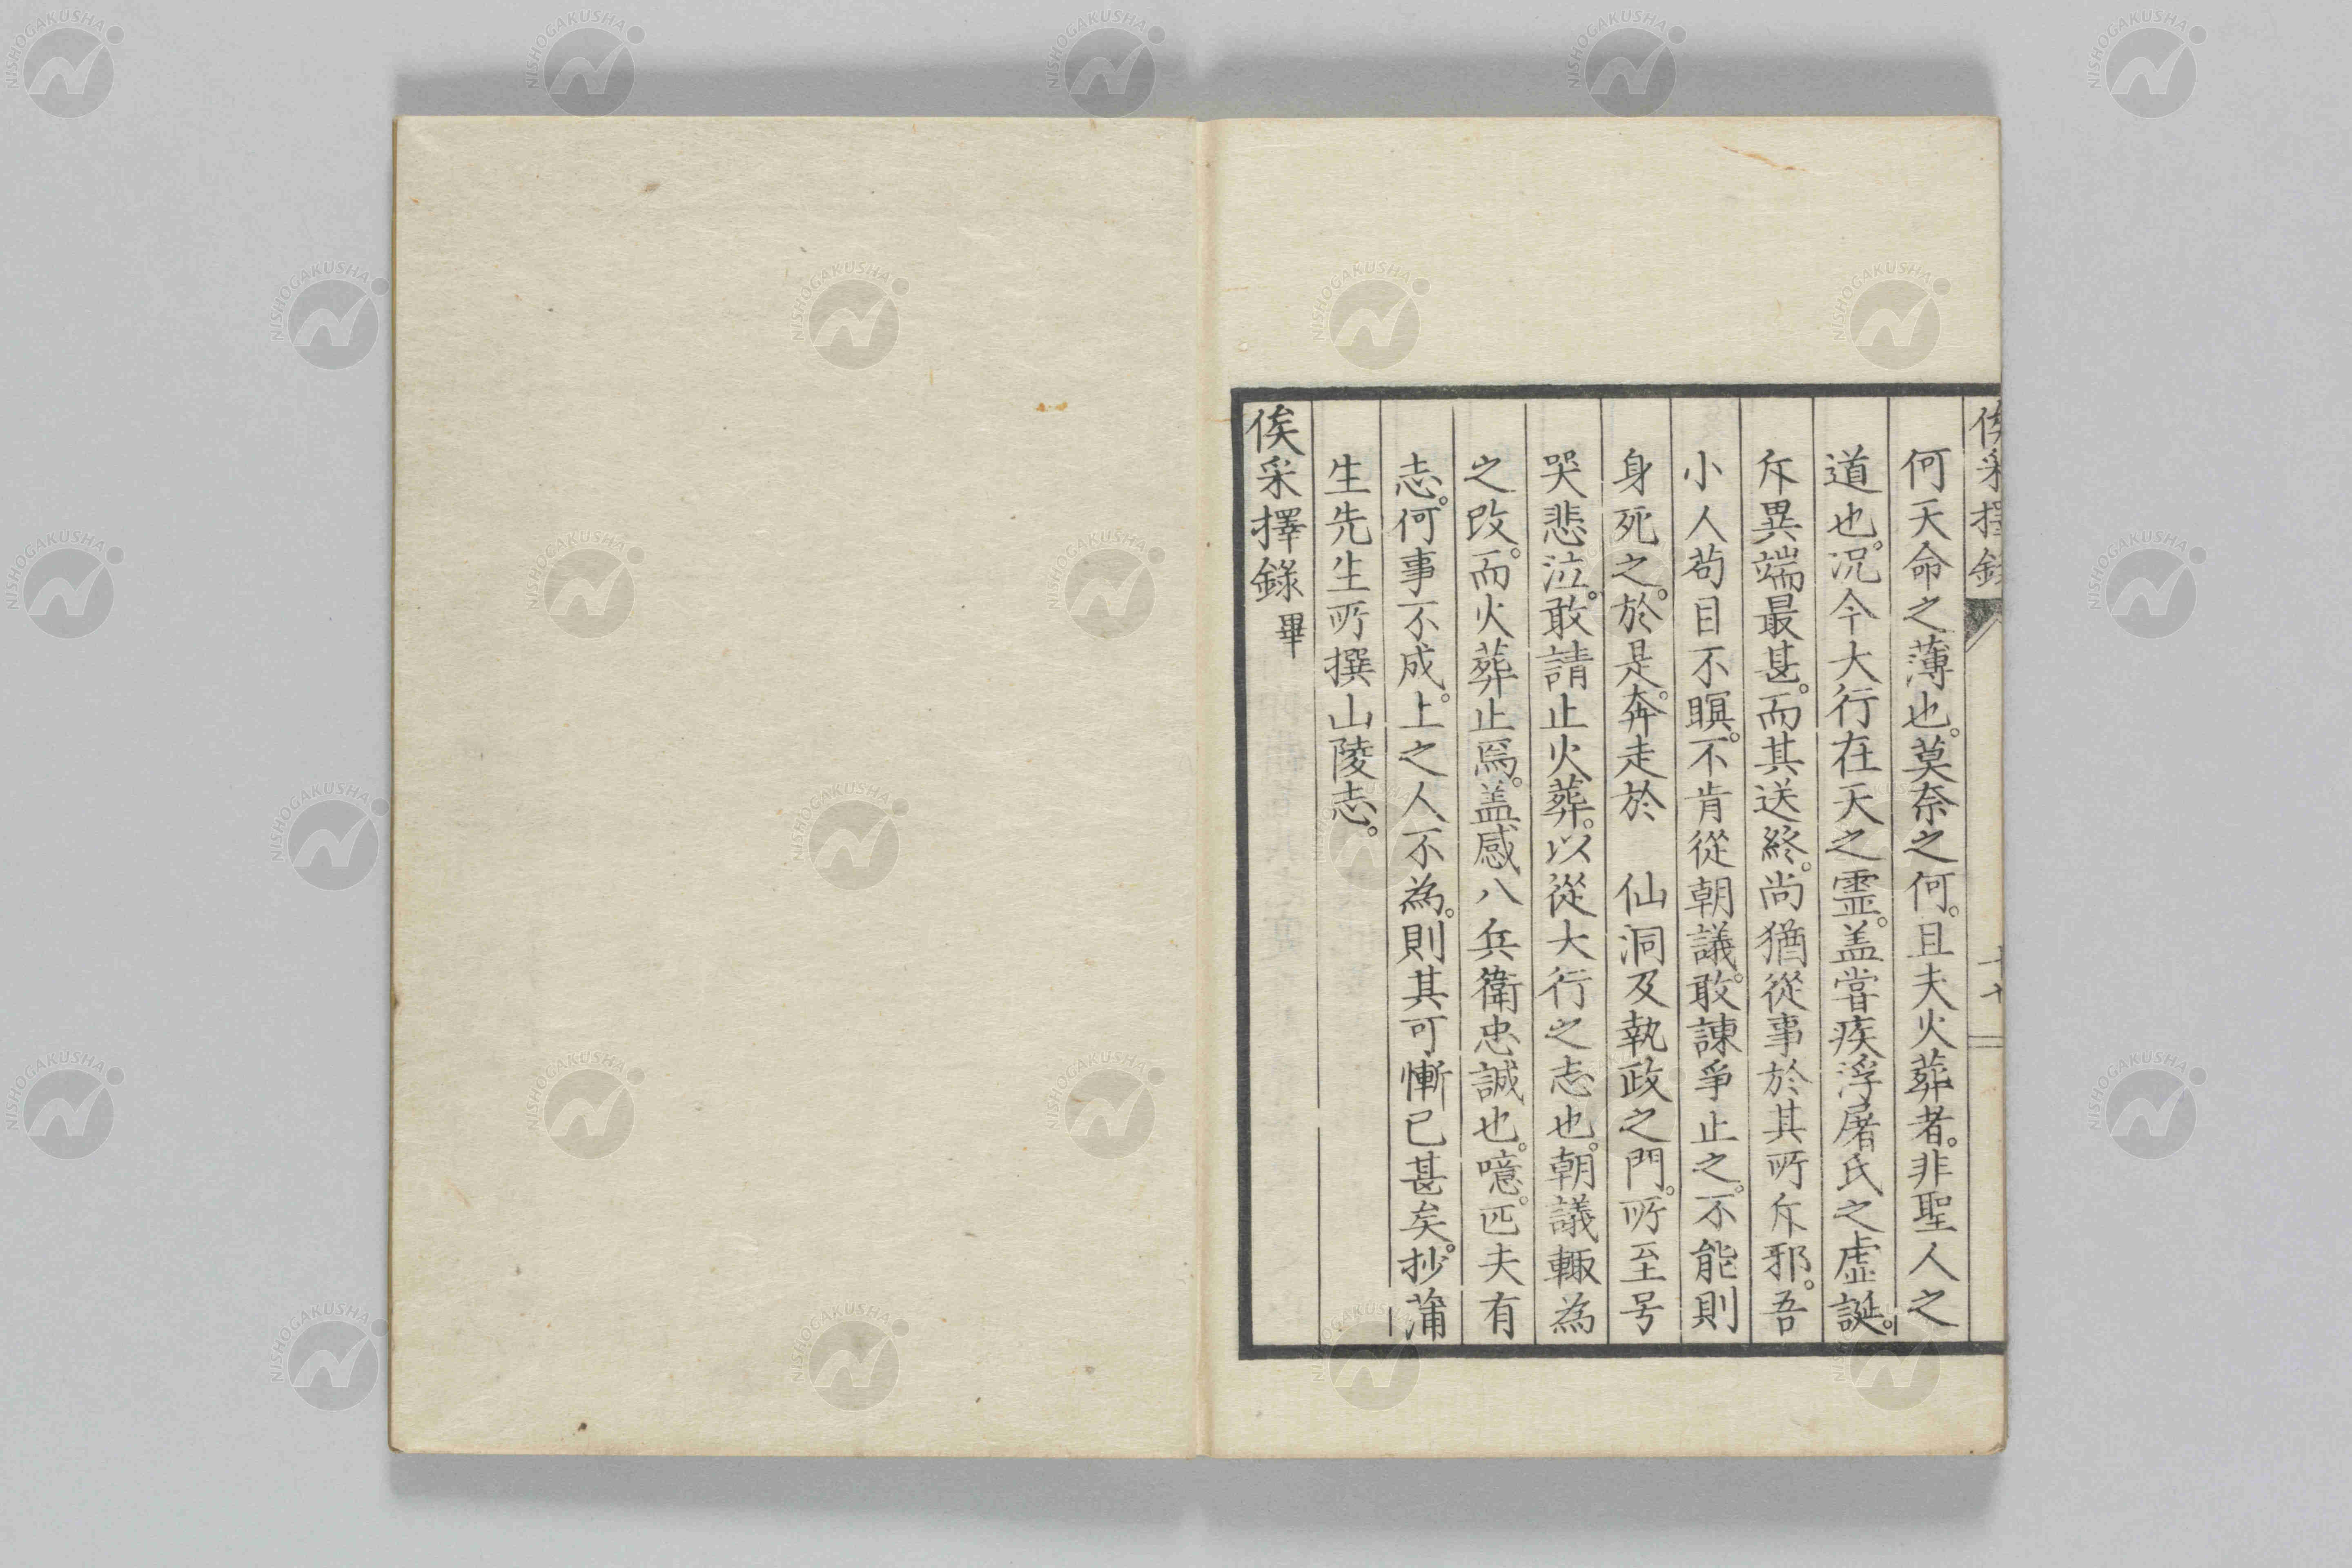 何天命之薄也。莫奈之何。且夫火葬者。非聖人之
道也。況今大行在天之霊。盖嘗疾浮屠氏之虛誕。
斥異端最甚。而其送終。尚猶從事於其所斥邪。吾
小人苟目不瞑。不肯從朝議。敢諫爭止之。不能則
身死之。於是。奔走於　仙洞及執政之門。所至号
哭悲泣。敢請止火葬。以從大行之志也。朝議輙為
之改。而火葬止焉。盖感八兵衛忠誠也。噫。匹夫有
志。何事不成。上之人不為。則其可慚已甚矣。抄蒲
生先生所撰山陵志。
俟采擇錄畢